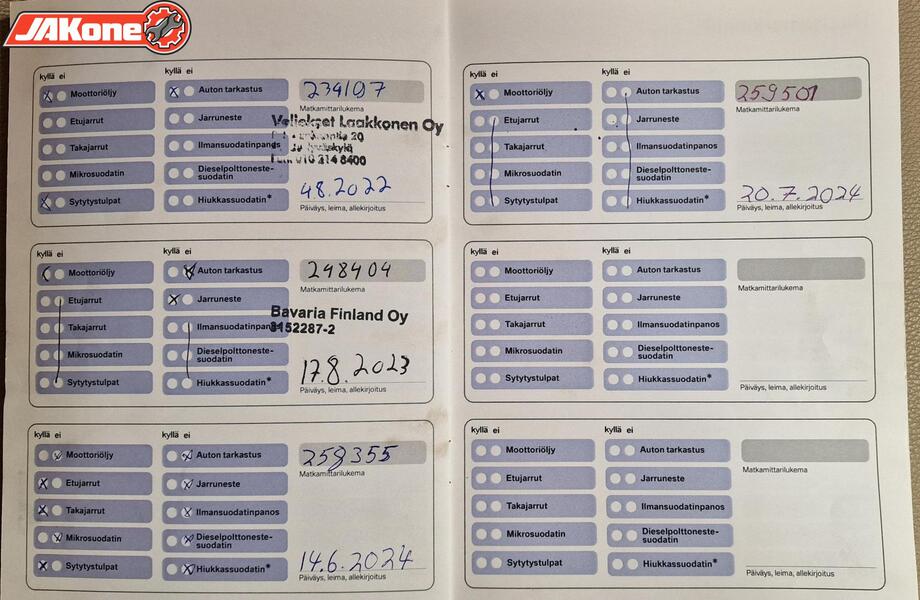 JAKone
kyllä ei
kyllä ei
Moottoriöljy
Auton tarkastus
234107
Matkamittarilukema
Etujarrut
Jarruneste
Veljekset Laakkonen Oy
20
Takajarrut
Ilmansuodatinpanos
Jyväskylä
Puh. 010 214 8400
Mikrosuodatin
Dieselpolttoneste-
suodatin
4.8.2022
Sytytystulpat
Hiukkassuodatin*
Päiväys, leima, allekirjoitus
kyllä ei
kyllä ei
Moottoriöljy
Auton tarkastus
248404
Matkamittarilukema
Etujarrut
Jarruneste
Bavaria Finland Oy
Takajarrut
Ilmansuodatinpanos
8152287-2
Mikrosuodatin
Dieselpolttoneste-
suodatin
17.8.2023
Sytytystulpat
Hiukkassuodatin*
Päiväys, leima, allekirjoitus
kyllä ei
kyllä ei
Moottoriöljy
Auton tarkastus
258355
Matkamittarilukema
Etujarrut
Jarruneste
Takajarrut
Ilmansuodatinpanos
Mikrosuodatin
Dieselpolttoneste-
suodatin
14.6.2024
Sytytystulpat
Hiukkassuodatin*
Päiväys, leima, allekirjoitus
kyllä ei
kyllä ei
Moottoriöljy
Auton tarkastus
259501
Matkamittarilukema
Etujarrut
Jarruneste
Takajarrut
Ilmansuodatinpanos
Mikrosuodatin
Dieselpolttoneste-
suodatin
20.7.2024
Sytytystulpat
Hiukkassuodatin*
Päiväys, leima, allekirjoitus
kyllä ei
kyllä ei
Moottoriöljy
Auton tarkastus
Matkamittarilukema
Etujarrut
Jarruneste
Takajarrut
Ilmansuodatinpanos
Mikrosuodatin
Dieselpolttoneste-
suodatin
Sytytystulpat
Hiukkassuodatin*
Päiväys, leima, allekirjoitus
kyllä ei
kyllä ei
Moottoriöljy
Auton tarkastus
Matkamittarilukema
Etujarrut
Jarruneste
Takajarrut
Ilmansuodatinpanos
Mikrosuodatin
Dieselpolttoneste-
suodatin
Sytytystulpat
Hiukkassuodatin*
Päiväys, leima, allekirjoitus